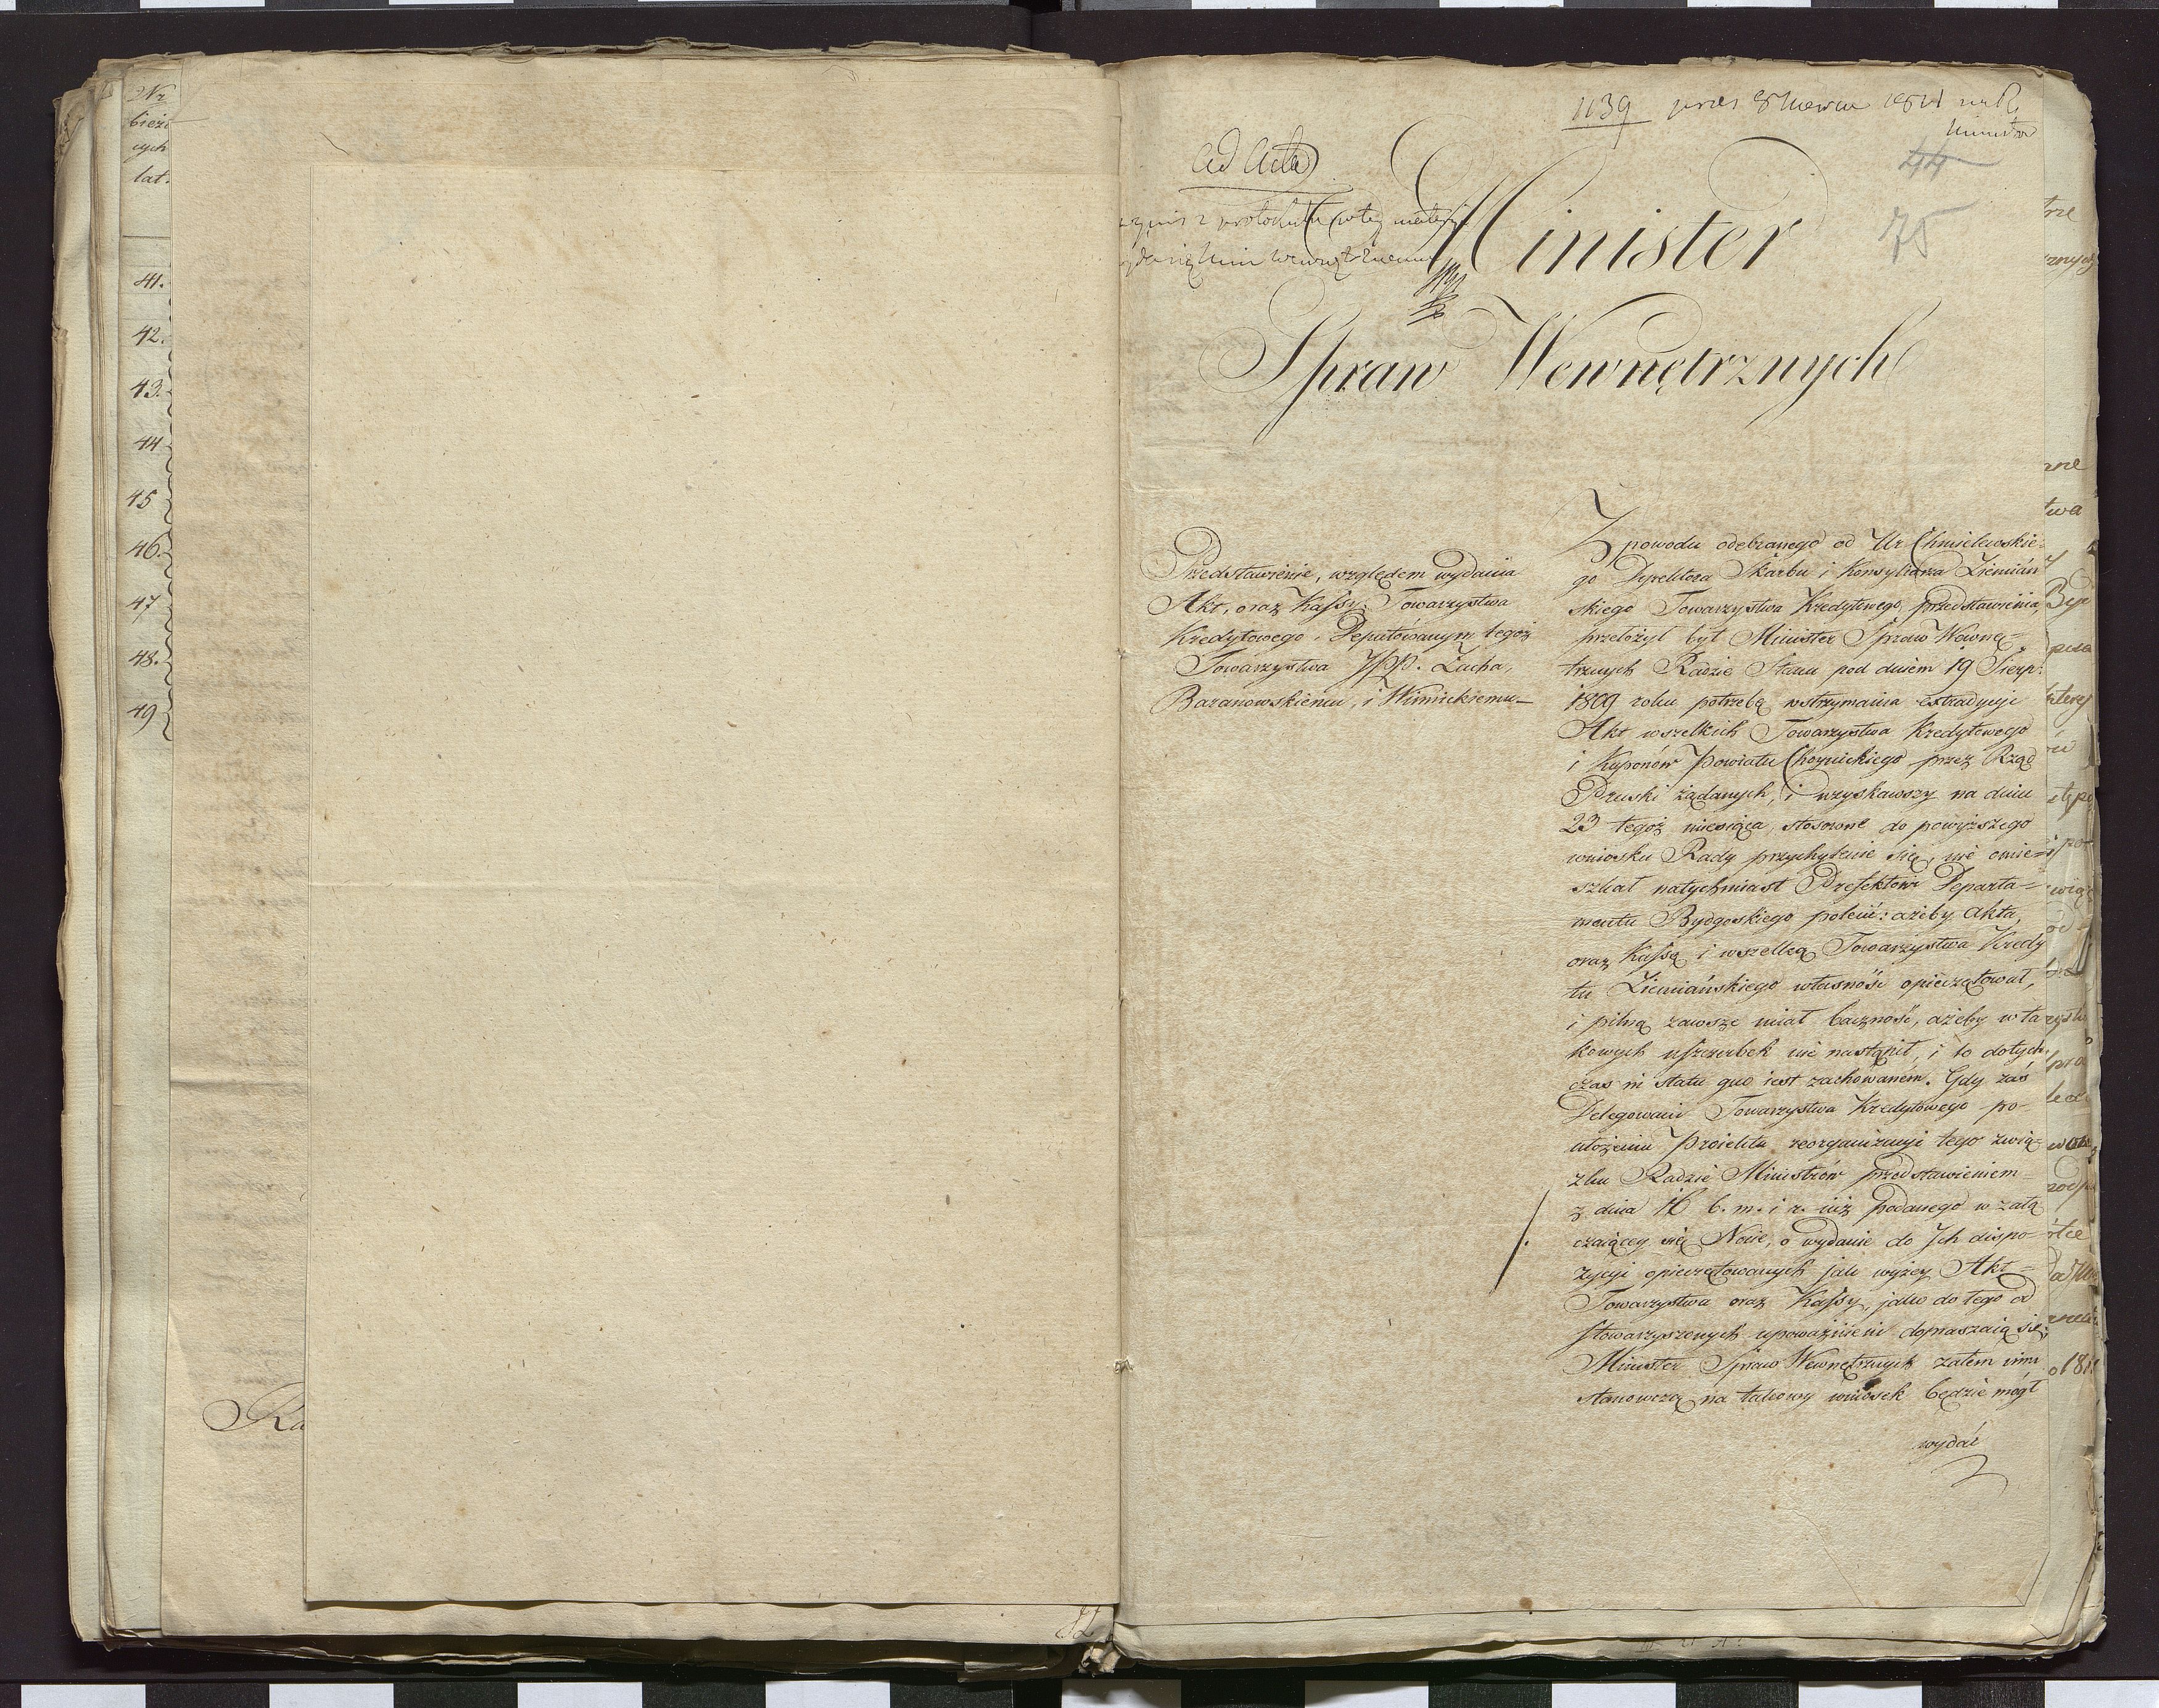 Nr
bieżą
cych
lat.
41.
42.
43.
44
45
46.
47
48.
49
Ra
82
1139
44
75
ad acta
Minister
Spraw Wewnętrznych
Przedstawienie, względem wydania
Akt, oraz Kassy Towarzystwa
Kredytowego, Deputowanym tegoż
Towarzystwa JPP. Zacha,
Baranowskiemu, i Winnickiemu_
Z powodu odebranego od Ur Chmielewskie=
go Dyrektora Skarbu i Konsyliarza Ziemiań
skiego Towarzystwa Kredytowego, przedstawienia,
przełożył był Minister Spraw Wewnę=
trznych Radzie Stanu pod dniem 19 Sierp:
1809 roku potrzebę wstrzymania extradycyi
Akt wszelkich Towarzystwa Kredytowego
i Kuponów Powiatu Choynickiego przez Rząd
Pruski żądanych, i uzyskawszy na dniu
23 tegoż miesiąca, stosowne do powyższego
wniosku Rady przychylenie się, nie omie=
szkał natychmiast Prefektowi Departa=
mentu Bydgoskiego polecić: ażeby akta,
oraz Kassę i wszelką Towarzystwa Kredy
tu Ziemiańskiego własność opieczętował,
i pilną zawsze miał baczność, ażeby w ta
kowych uszczerbek nie nastąpił, i to dotych
czas in statu quo iest zachowaném. Gdy zaś
Delegowani Towarzystwa Kredytowego po-
ułożeniu Proiektu reorganizacyi tego zwią-
zku Radzie Ministrów przedstawieniem
z dnia 16 b. m. i r. iuż podanego w załą
czaiącey się Nocie, o wydanie do Ich dispo-
zycyi opieczętowanych jak wyżey Akt=
Towarzystwa oraz Kassy, jako do tego od
stowarzyszonych upoważnieni dopraszaią się;
Minister Spraw Wewnętrznych zatem nim
stanowczą na takowy wniosek będzie mógł
wydać